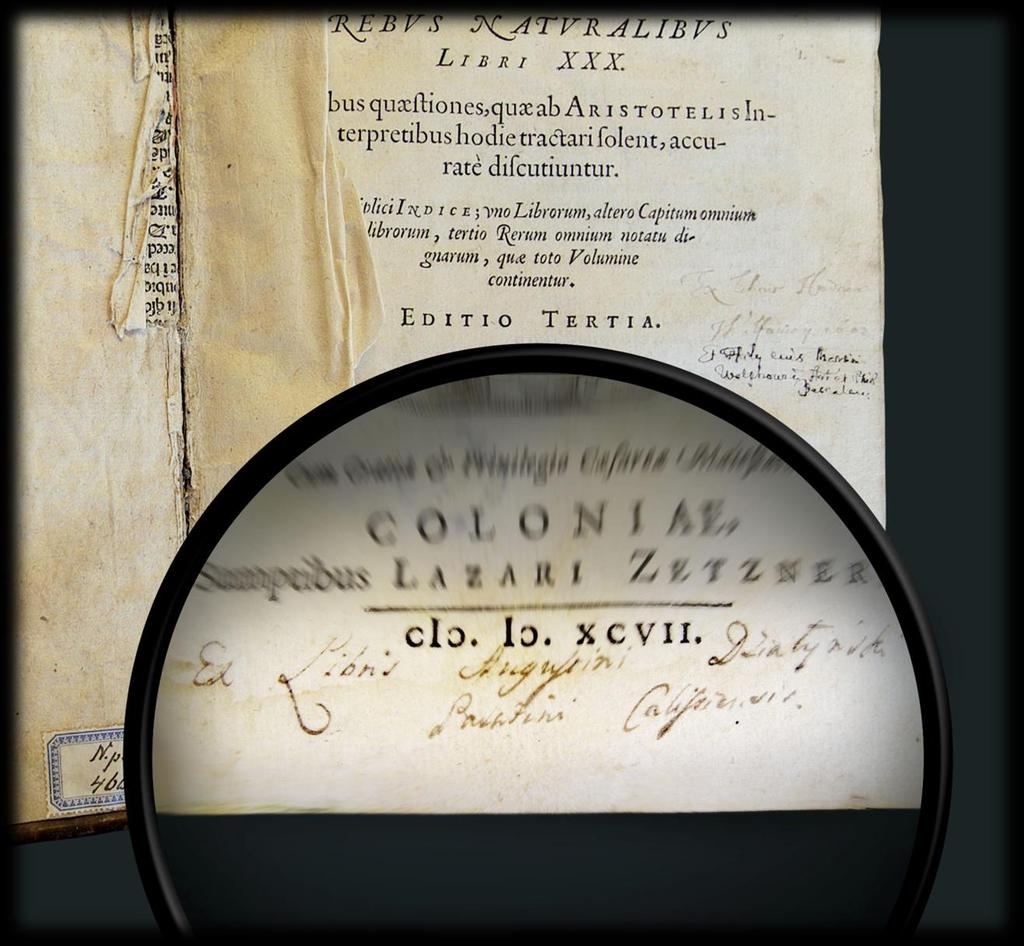 REBVS NATVRALIBVS
LIBRI XXX.
bus quæſtiones, quæ ab ARISTOTELIS In-
terpretibus hodie tractari ſolent, accu-
ratè diſcutiuntur.
plici INDICE; vno Librorum, altero Capitum omnium
librorum, tertio Rerum omnium notatu di-
gnarum, quæ toto Volumine
continentur.
EDITIO TERTIA.
Cum Gratia & Priuilegio Caſareæ Maieſta
COLONIAE,
Sumptibus LAZARI ZETZNER
cIↃ. IↃ. XCVII.
Ex Libris Augustini Dziatynski
Palatini Calissiensis.
N. p